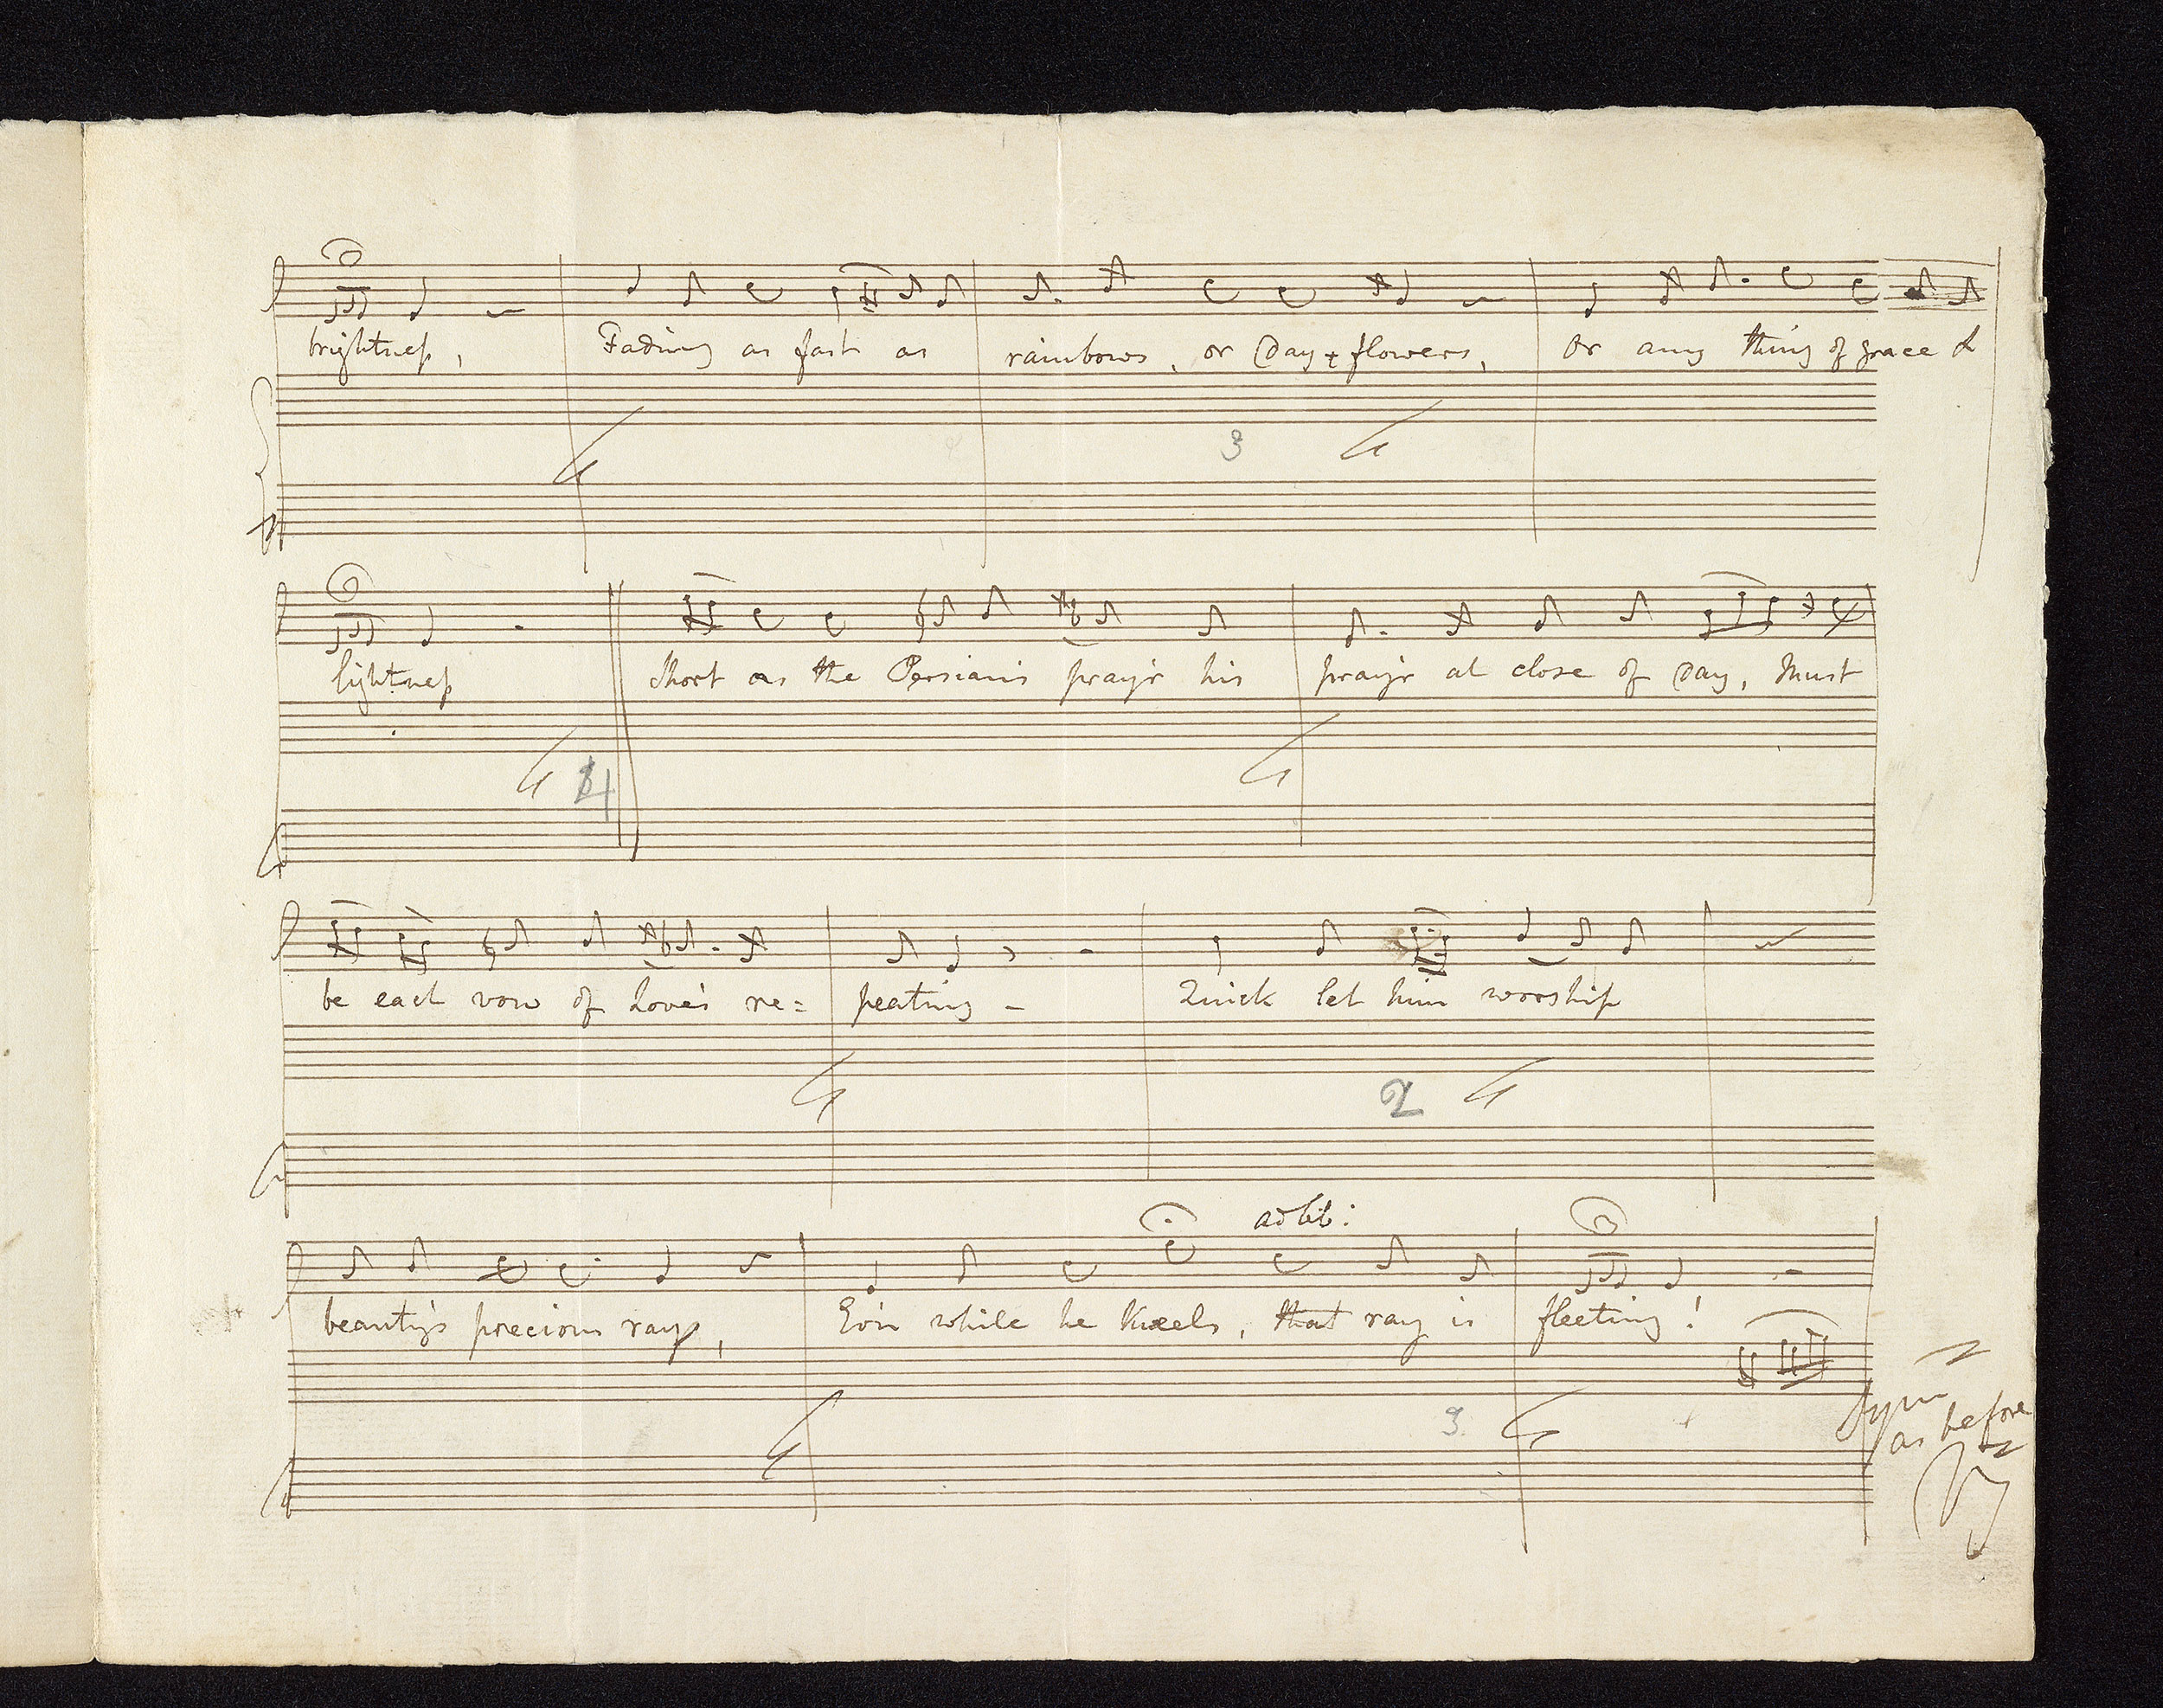 brightness,  Fading as fast as rainbows, or Day + flowers, Or any thing of grace &
3
lightness  Short as the Persian's pray'r his pray'r at close of Day, Must
4
be each vow of Love's re= peating –  Quick let him worship
2
ad lib:
beauty's precious rays,  Ev'n while he kneels, that ray is fleeting!
3
Sym
as before